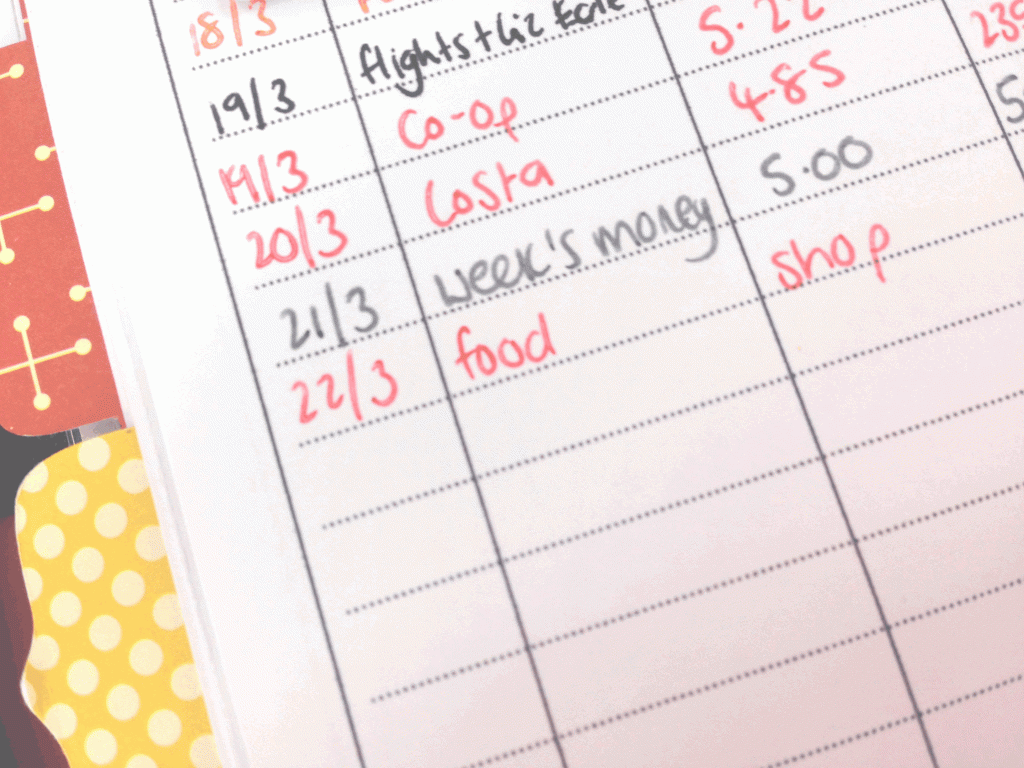 18/3
19/3 flights + Liz
19/3 Co-op 5.22
20/3 Costa 4.85 239
21/3 week's money 5.00
22/3 food shop